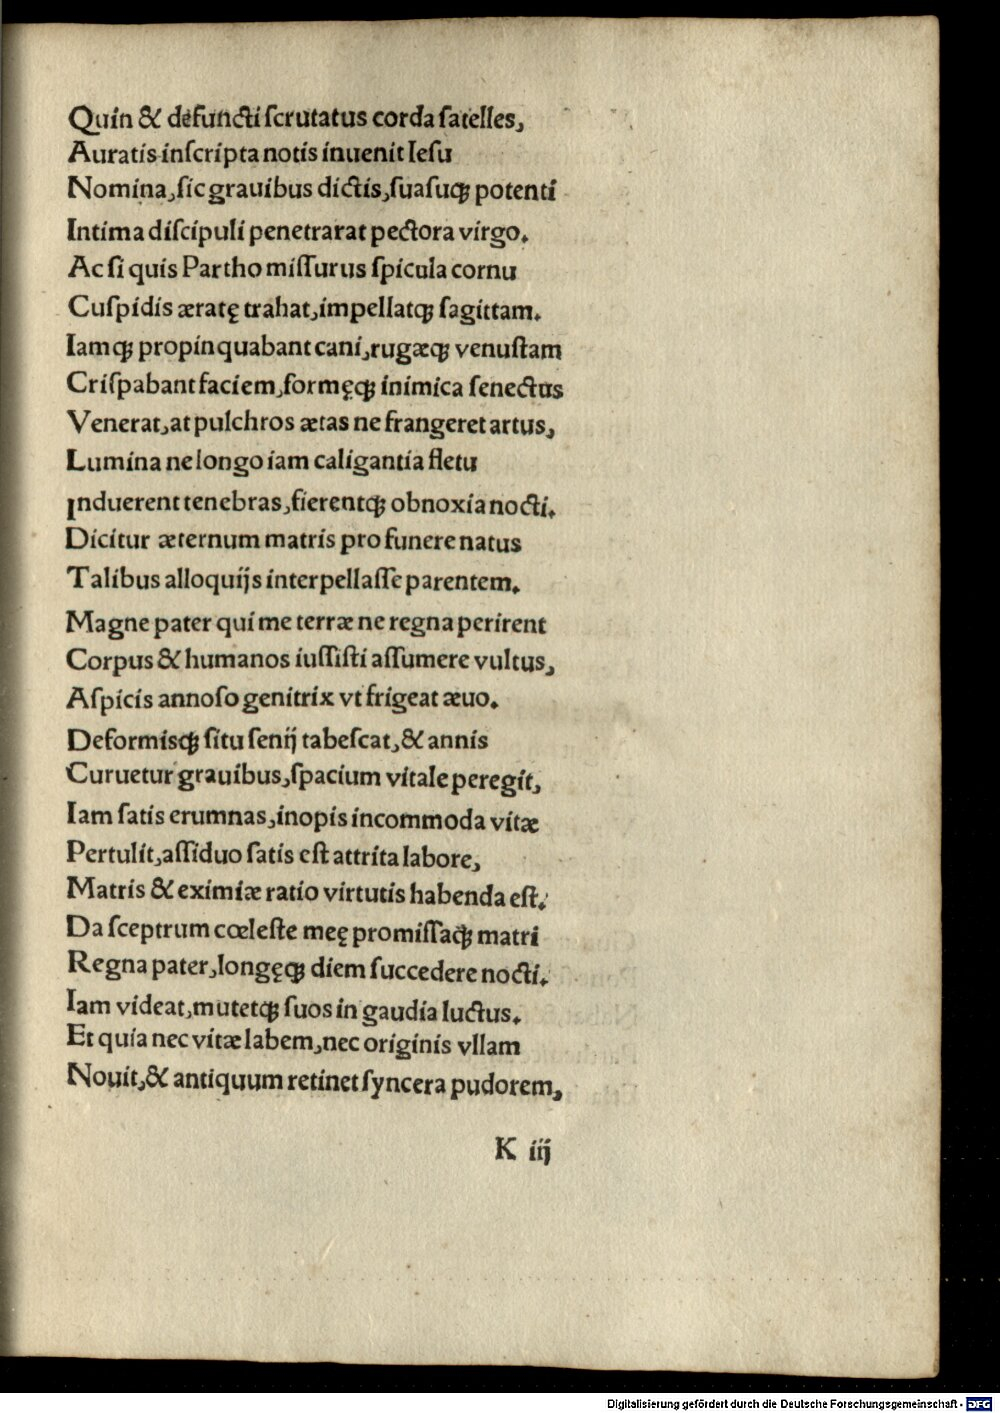 Quin & defuncti ſcrutatus corda ſatelles,
Auratis inſcripta notis inuenit Ieſu
Nomina, ſic grauibus dictis, ſuaſuqꝫ potenti
Intima diſcipuli penetrarat pectora virgo.
Ac ſi quis Partho miſſurus ſpicula cornu
Cuſpidis æratę trahat, impellatqꝫ ſagittam.
Iamqꝫ propinquabant cani, rugæqꝫ venuſtam
Criſpabant faciem, formęqꝫ inimica ſenectus
Venerat, at pulchros ætas ne frangeret artus,
Lumina ne longo iam caligantia fletu
Induerent tenebras, fierentqꝫ obnoxia nocti.
Dicitur æternum matris pro funere natus
Talibus alloquijs interpellaſſe parentem.
Magne pater qui me terræ ne regna perirent
Corpus & humanos iuſſiſti aſſumere vultus,
Aſpicis annoſo genitrix vt frigeat æuo.
Deformisqꝫ ſitu ſenij tabeſcat, & annis
Curuetur grauibus, ſpacium vitale peregit,
Iam ſatis erumnas, inopis incommoda vitæ
Pertulit, aſſiduo ſatis eſt attrita labore,
Matris & eximiæ ratio virtutis habenda eſt.
Da ſceptrum cœleſte meę promiſſaqꝫ matri
Regna pater, longęqꝫ diem ſuccedere nocti.
Iam videat, mutetqꝫ ſuos in gaudia luctus.
Et quia nec vitæ labem, nec originis vllam
Nouit, & antiquum retinet ſyncera pudorem,
K iij
Digitalisierung gefördert durch die Deutsche Forschungsgemeinschaft - DFG